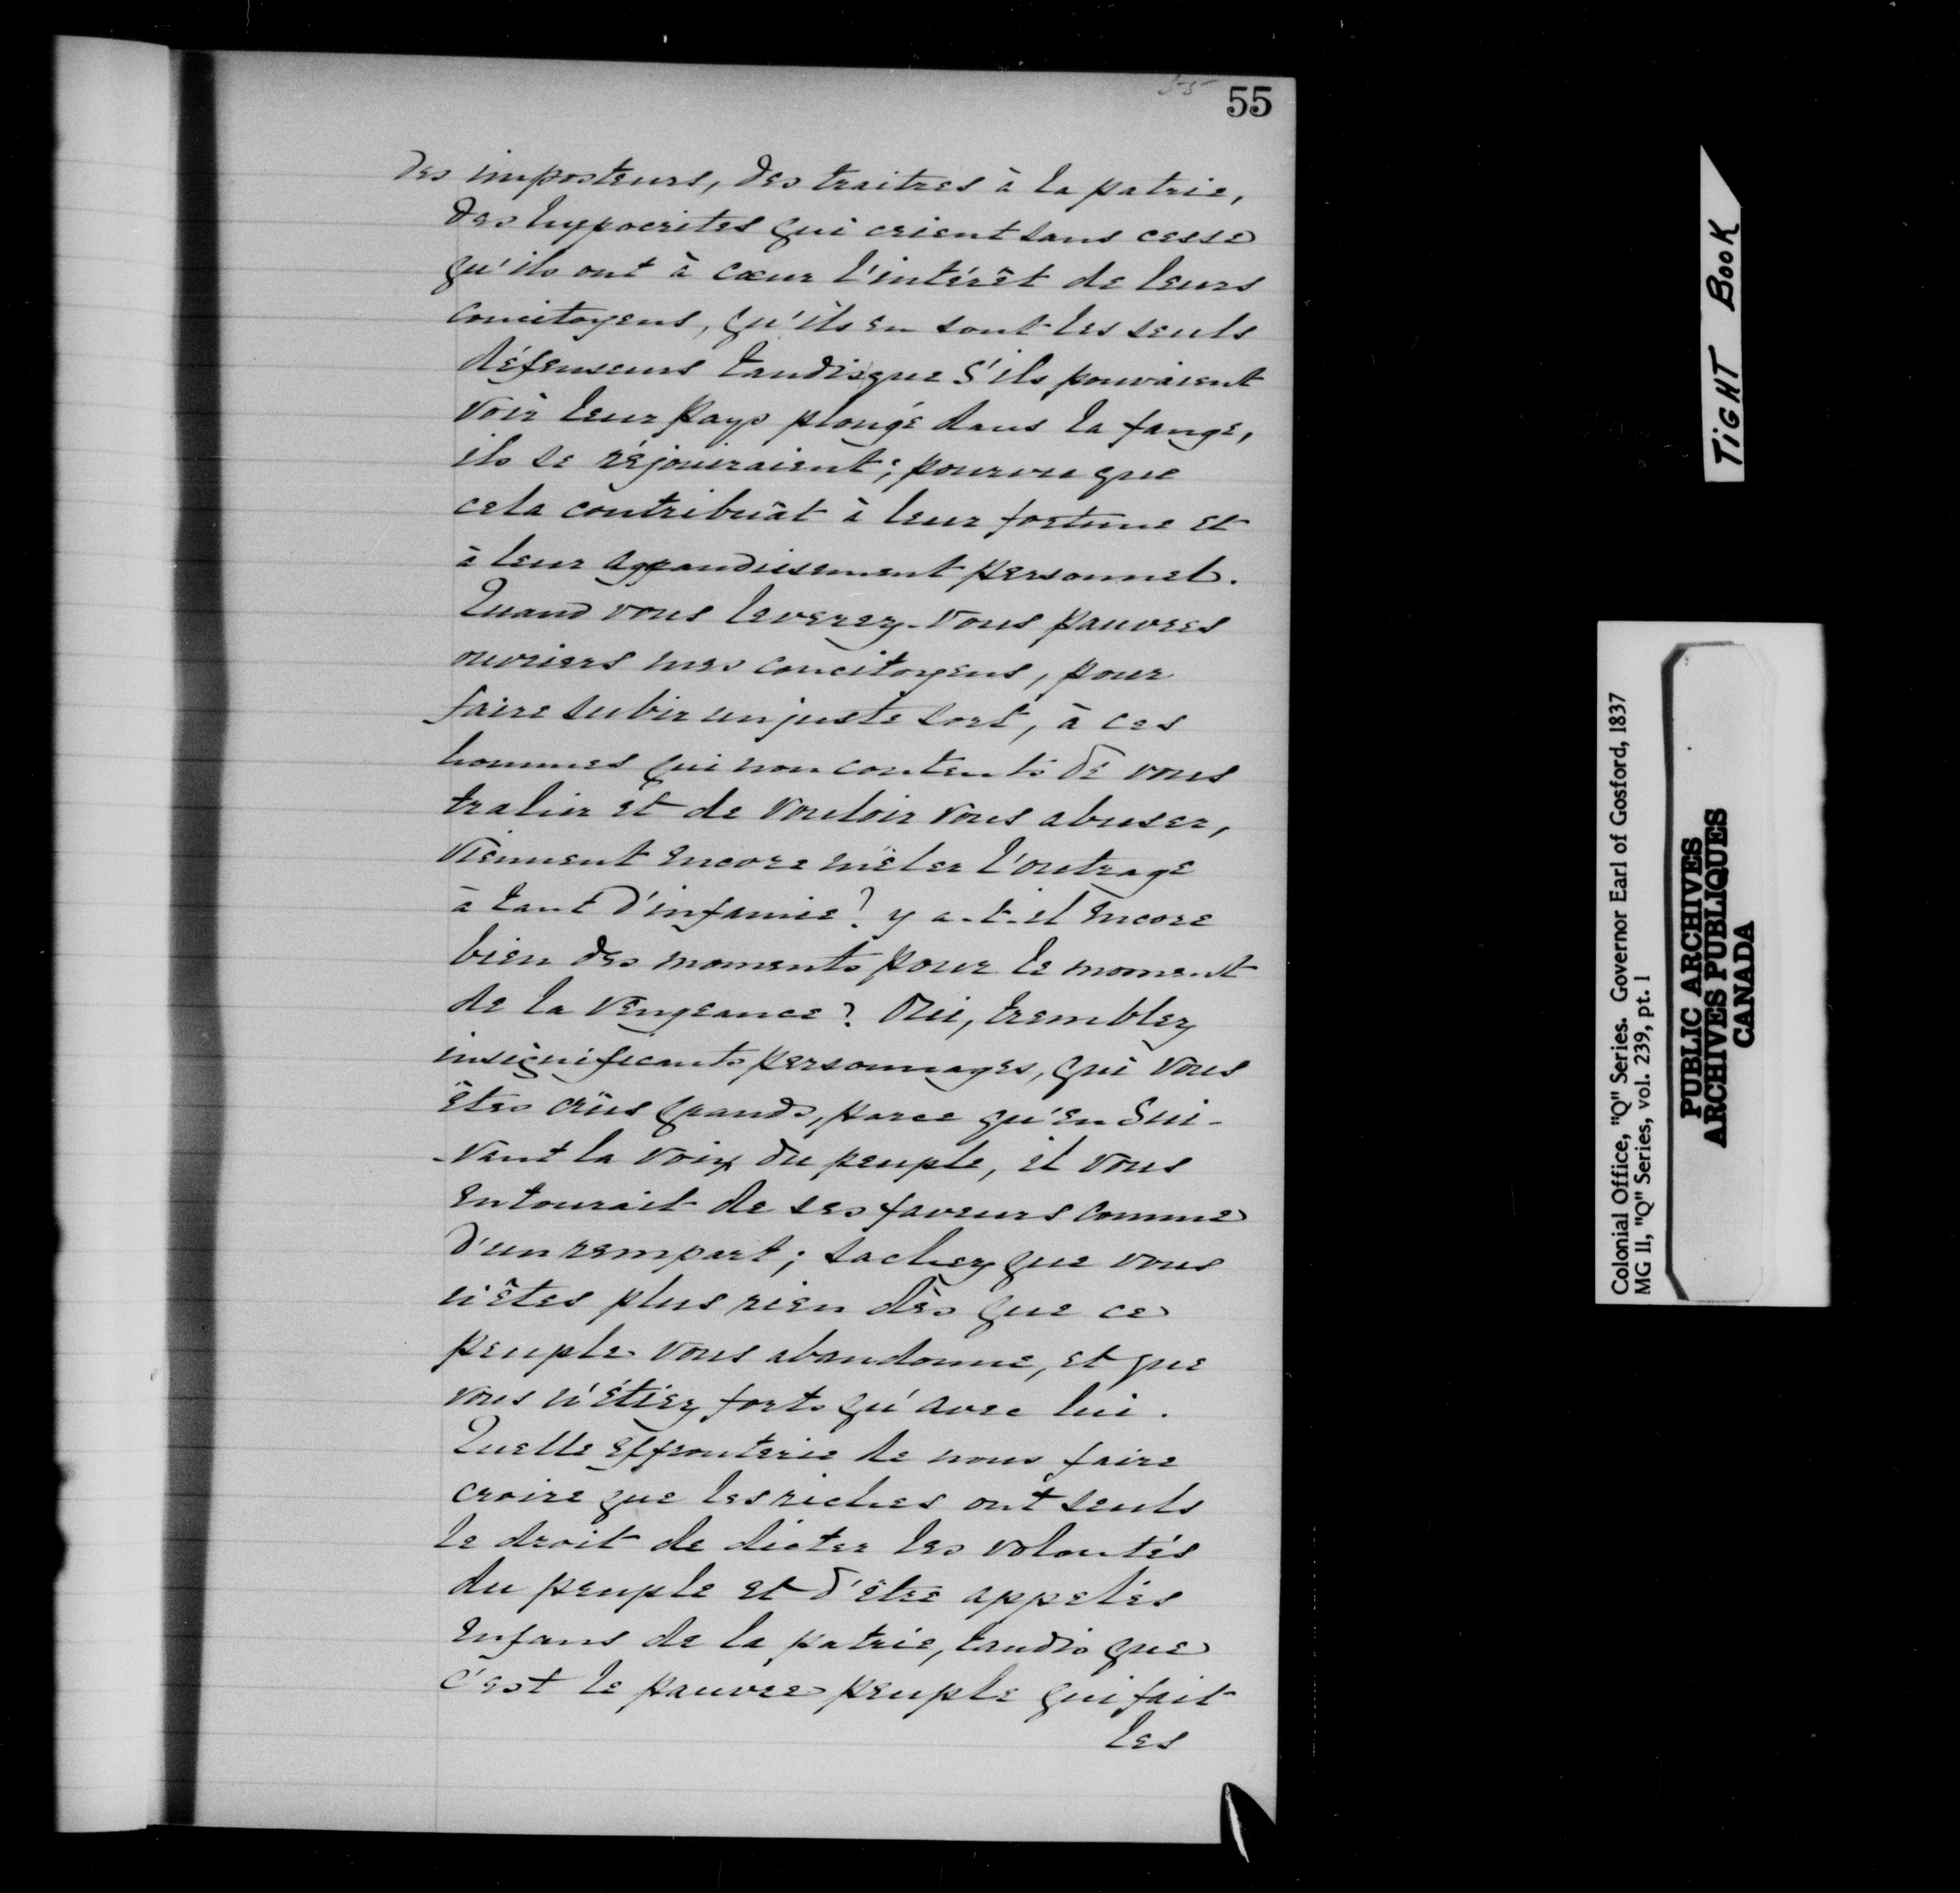 55
55
des imposteurs, des traitres à la patrie,
des hypocrites qui crient sans cesse
qu'ils ont à cœur l'intérêt de leurs
concitoyens, qu'ils en sont les seuls
défenseurs tandisque s'ils pouvaient
voir leur pays plongé dans la fange,
ils se réjouiraient; pourvu que
cela contribuât à leur fortune et
à leur aggrandissement personnel.
Quand vous leverez-vous pauvres
ouvriers mes concitoyens, pour
faire subir un juste sort, à ces
hommes qui non contents de vous
trahir et de vouloir vous abuser,
viennent encore mêler l'outrage
à tant d'infamie? y a-t-il encore
bien des moments pour le moment
de la vengeance? Oui, tremblez
insignificants personnages, qui vous
êtes crûs grands, parce qu'en sui-
-vant la voix du peuple, il vous
entourait de ses faveurs comme
d'un rempart; sachez que vous
n'êtes plus rien dès que ce
peuple vous abandonne, et que
vous n'étiez forts qu'avec lui.
Quelle effronterie de nous faire
croire que les riches ont seuls
le droit de dicter les volontés
du peuple et d'être appelés
enfans de la patrie, tandis que
c'est le pauvre peuple qui fait
les
TIGHT BOOK
Colonial Office, "Q" Series. Governor Earl of Gosford, 1837
MG 11, "Q" Series, vol. 239, pt. 1
PUBLIC ARCHIVES
ARCHIVES PUBLIQUES
CANADA